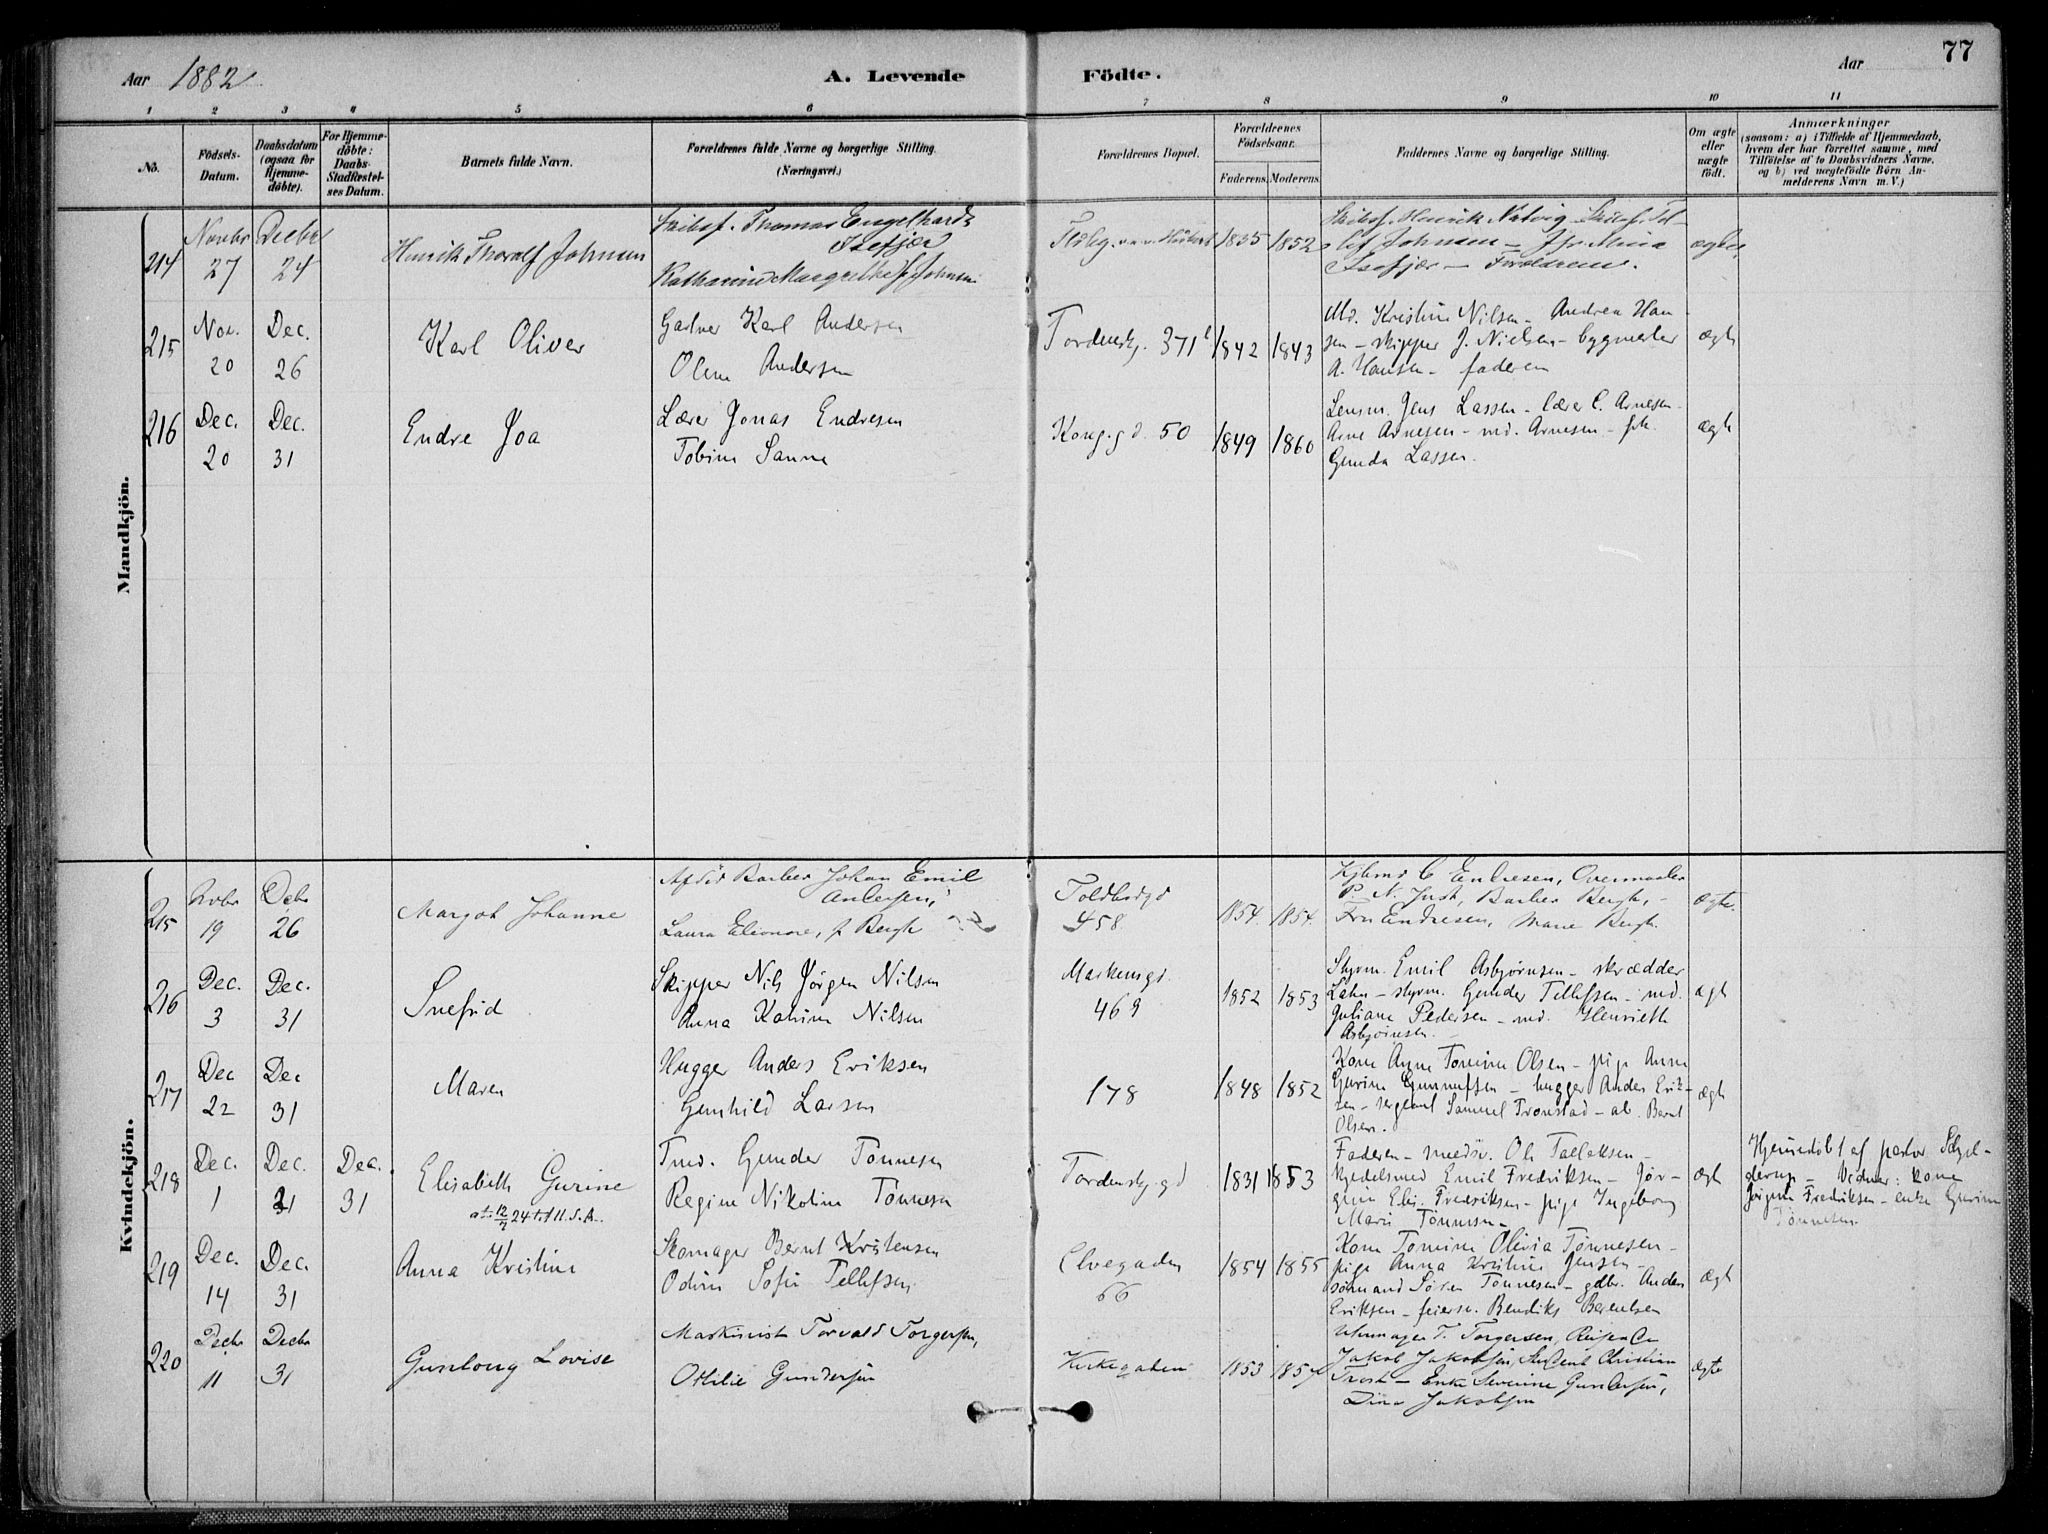 77
Aar 1882 A. Levende Födte. Aar
1 2 3 4 5 6 7 8 9 10 11
No. Födsels-Datum. Daabsdatum (ogsaa for Hjemme-döbte). For Hjemme-döbte: Daabs-Stadfæstel-ses Datum. Barnets fulde Navn. Forældrenes fulde Navne og borgerlige Stilling. (Næringsvei.) Forældrenes Bopæl. Forældrenes Födselsaar. Faderens. Moderens. Faddernes Navne og borgerlige Stilling. Om ægte eller uægte födt. Anmærkninger (saasom: a) i Tilfælde af Hjemmedaab, hvem der har forrettet samme, med Tilföielse af to Daabsvidners Navne, og b) ved uægtefödte Börn An-melderens Navn m. V.)
Mandkjön.
214 Novbr 27 Decbr 24 Henrik Thoralf Johnsen
Skibsf. Thomas Engelhardt
Isefjær
Katharine Margrethe f. Johnsen
1835 1852
Skibsf. Henrik Natvig
Johnsen - Jfr. Mina
Isefjær - Forældrene.
ægte
215 Nov. 20 Dec. 26 Karl Oliver
Gartner Karl Andersen
Oline Andersen
Tordenskj. 371 1842 1843
Md. Kristine Nilsen - Andrea Han-
sen - skipper J. Nielsen - bygmester
A. Hansen - faderen
ægte
216 Dec. 20 Dec. 31 Endre Joa
Lærer Jonas Endresen
Tobine Sanne
Kong. gd. 50 1849 1860
Lensm. Jens Lassen - lærer C. Arnesen -
Arne Arnesen - md. Arnesen - frk.
Gunda Lassen.
ægte
Kvindekjön.
215 Novbr 19 Decbr 26 Margot Johanne
Afdöd Barber Johan Emil
Andersen,
Laura Eleonore, f. Bergh
Toldbodgd
458.
1854. 1854.
Kjbmd C Endresen, Overmaaler
P. N. Just, Barber Bergh, -
Fru Endresen, Marie Bergh.
ægte.
216 Dec. 3 Dec. 31 Snefrid
Skipper Nils Jørgen Nilsen
Anna Katrine Nilsen
Markensgd.
469
1852 1853
Styrm. Emil Asbjørnsen - skrædder
Lahn - styrm. Gunder Tellefsen - md.
Juliane Pedersen - md. Henriette
Asbjørnsen.
ægte
217 Dec 22 Dec 31 Maren
Hugger Anders Eriksen
Gunhild Larsen
178 1848 1852
Kone Anne Tomine Olsen - pige Anne
Gurine Gunnufsen - hugger Anders Erik-
sen - sergeant Samuel Tronstad - ab. Bernt
Olsen.
ægte
218 Dec. 1 Dec. 31 Dec. 31 Elisabeth Gurine
Tmd. Gunder Tønnesen
Regine Nikoline Tønnesen
Tordenskj. gd 1831 1853
Faderen - Ole Tallaksen -
kjedelsmed Emil Fredriksen - Jør-
gine Eli. Fredriksen - pige Ingeborg
Marie Tønnesen -
ægte
Hjemmedöbt af pastor
Vidner: kone
Jørgine Fredriksen - enke Gurine
Tønnesen.
att. 12/7 24 til U.S.A.
219 Dec. 14 Dec. 31 Anna Kristine
Skomager Bernt Kristensen
Odine Sofie Tellefsen
Elvegaden
66
1854 1855
Kone Tomine Olivia Tønnesen -
pige Anna Kristine Jensen -
sømand Søren Tønnesen - gdbr. Anders
Eriksen - feiersv. Bendiks Berentsen
ægte
220 Decbr 11 Decbr 31 Gunlaug Lovise
Maskinist Torvald Torgersen,
Othilie Gundersen
Kirkegaden 1853 1857
Uhrmager T. Torgersen,
Jakob Jakobsen, Student Christian
Trost - Enke Severine Gundersen,
Dina Jakobsen
ægte